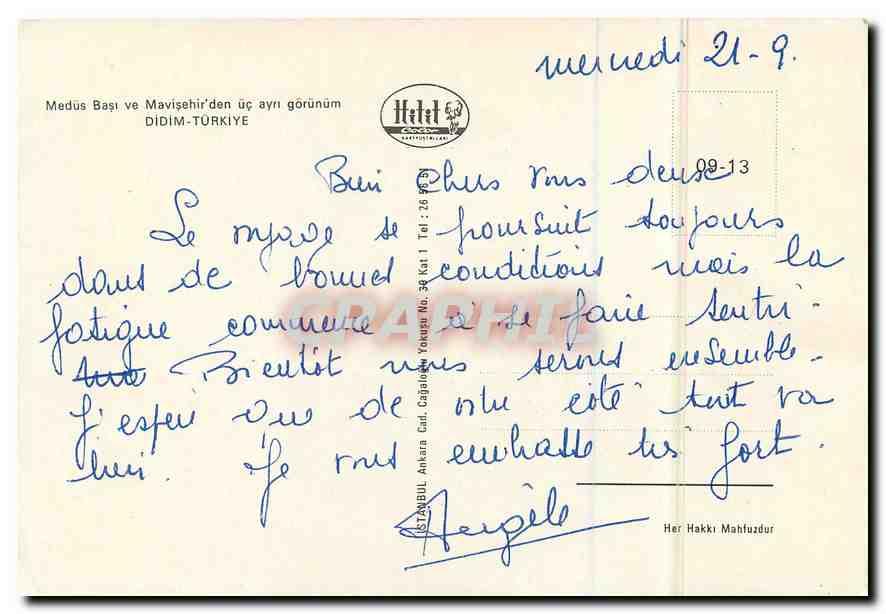 mercredi 21-9.
Medüs Başı ve Mavişehir'den üç ayrı görünüm
DİDİM-TÜRKİYE
Hitit
Color
KARTPOSTALLARI
09-13
Bien chers vous deux
Le voyage se poursuit toujours
dans de bonnes conditions mais la
fatigue commence à se faire sentir.
Bientôt nous serons ensemble.
J'espère que de votre côté tout va
bien. Je vous embrasse très fort.
Angèle
İSTANBUL Ankara Cad. Cağaloğlu Yokuşu No. 39 Kat 1 Tel : 26 56 51
Her Hakkı Mahfuzdur
GRAPHIL